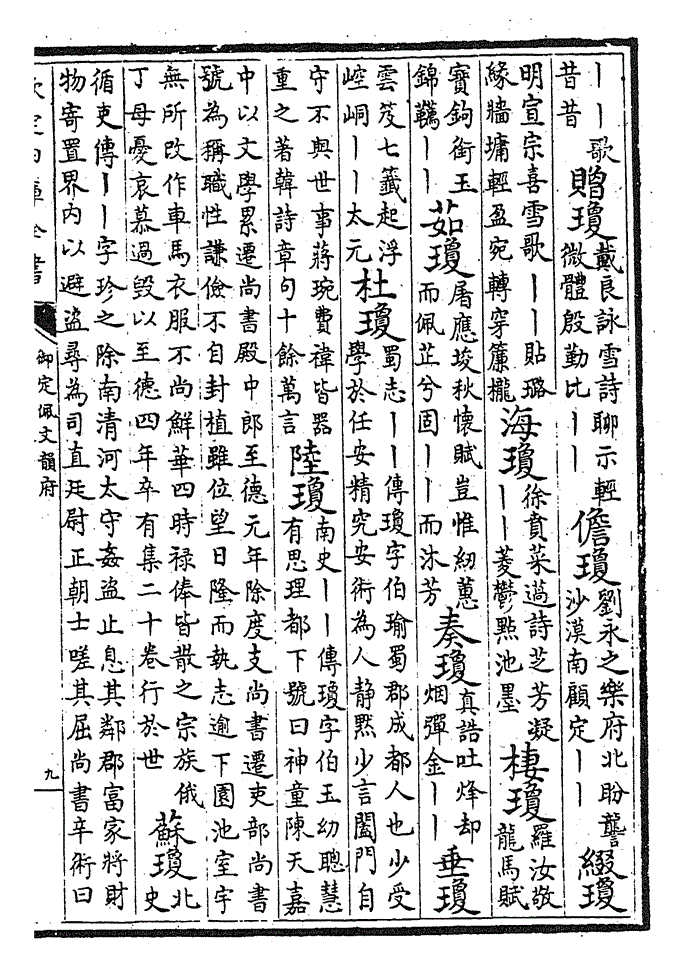 ――歌
昔昔
贈瓊
戴良詠雪詩聊示輕
微體殷勤比――
儋瓊
劉永之樂府北盼讋
沙漠南顧定――
綴瓊
明宣宗喜雪歌――貼璐
緣牆墉輕盈宛轉穿簾櫳
海瓊
徐賁菜薖詩芝芳凝
――菱鬱點池墨
棲瓊
羅汝敬
龍馬賦
寶鉤銜玉
錦韉――
茹瓊
屠應埈秋懷賦豈惟紉蕙
而佩芷兮固――而沐芳
奏瓊
真誥吐烽却
烟彈金――
垂瓊
雲笈七籤起浮
崆峒――太元
杜瓊
蜀志――傳瓊字伯瑜蜀郡成都人也少受
學於任安精究安術為人静黙少言闔門自
守不與世事蔣琬費禕皆器
重之著韓詩章句十餘萬言
陸瓊
南史――傳瓊字伯玉幼聰慧
有思理都下號曰神童陳天嘉
中以文學累遷尚書殿中郎至德元年除度支尚書遷吏部尚書
號為稱職性謙儉不自封植雖位望日隆而執志逾下園池室宇
無所改作車馬衣服不尚鮮華四時禄俸皆散之宗族俄
丁母憂哀慕過毀以至德四年卒有集二十卷行於世
蘇瓊
北
史
循吏傳――字珍之除南清河太守姦盜止息其鄰郡富家將財
物寄置界内以避盜尋為司直廷尉正朝士嗟其屈尚書卒術曰
欽定四庫全書
御定佩文韻府
九